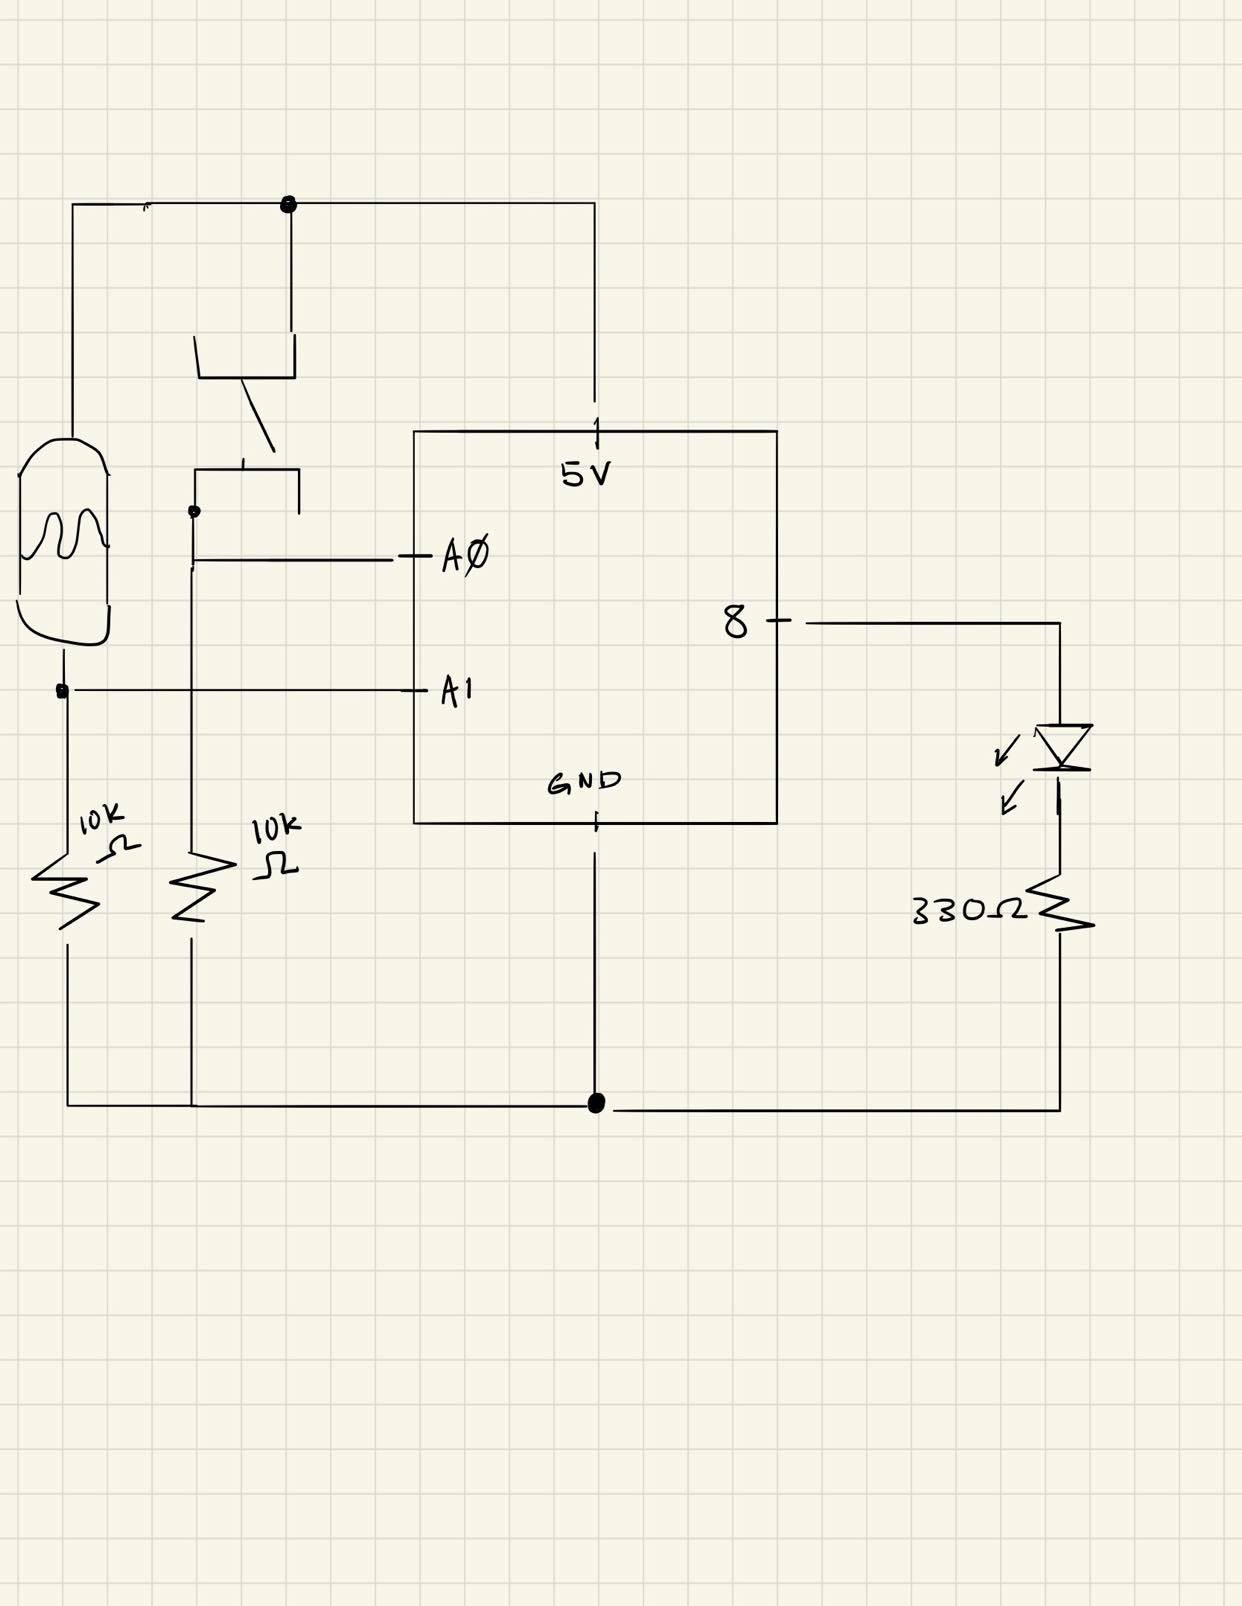 5V
AØ
8
A1
GND
10K
Ω
10K
Ω
330Ω